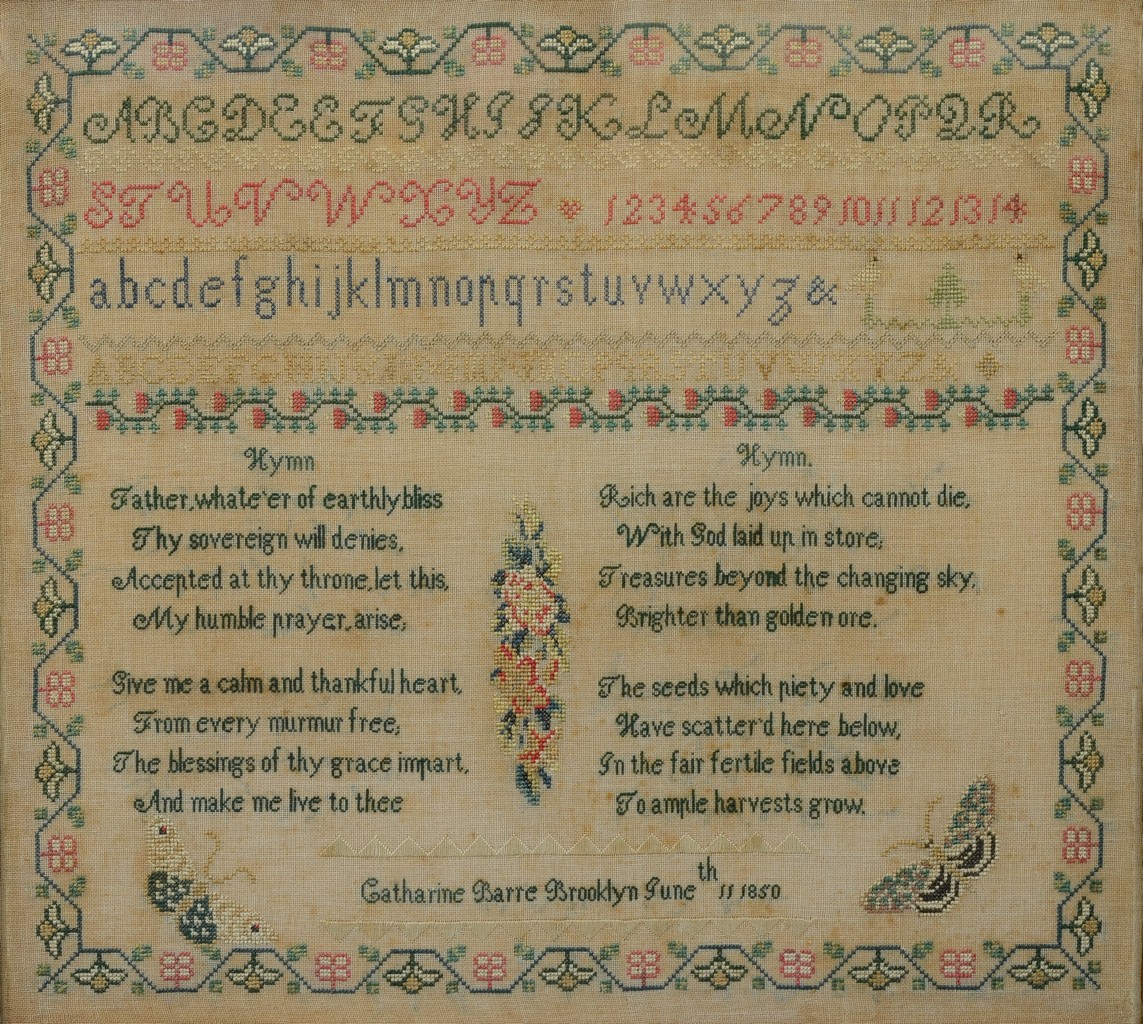 ABCDEEFGHIJKLMNOPQR
STUVWXYZ 1234567891011121314
abcdefghijklmnopqrstuvwxyz&
Hymn
Father, whate'er of earthly bliss
Thy sovereign will denies,
Accepted at thy throne, let this,
My humble prayer, arise;
Give me a calm and thankful heart,
From every murmur free;
The blessings of thy grace impart,
And make me live to thee
Hymn.
Rich are the joys which cannot die,
With God laid up in store;
Treasures beyond the changing sky,
Brighter than golden ore.
The seeds which piety and love
Have scatter'd here below,
In the fair fertile fields above
To ample harvests grow.
Catharine Barre Brooklyn June 11th 1850